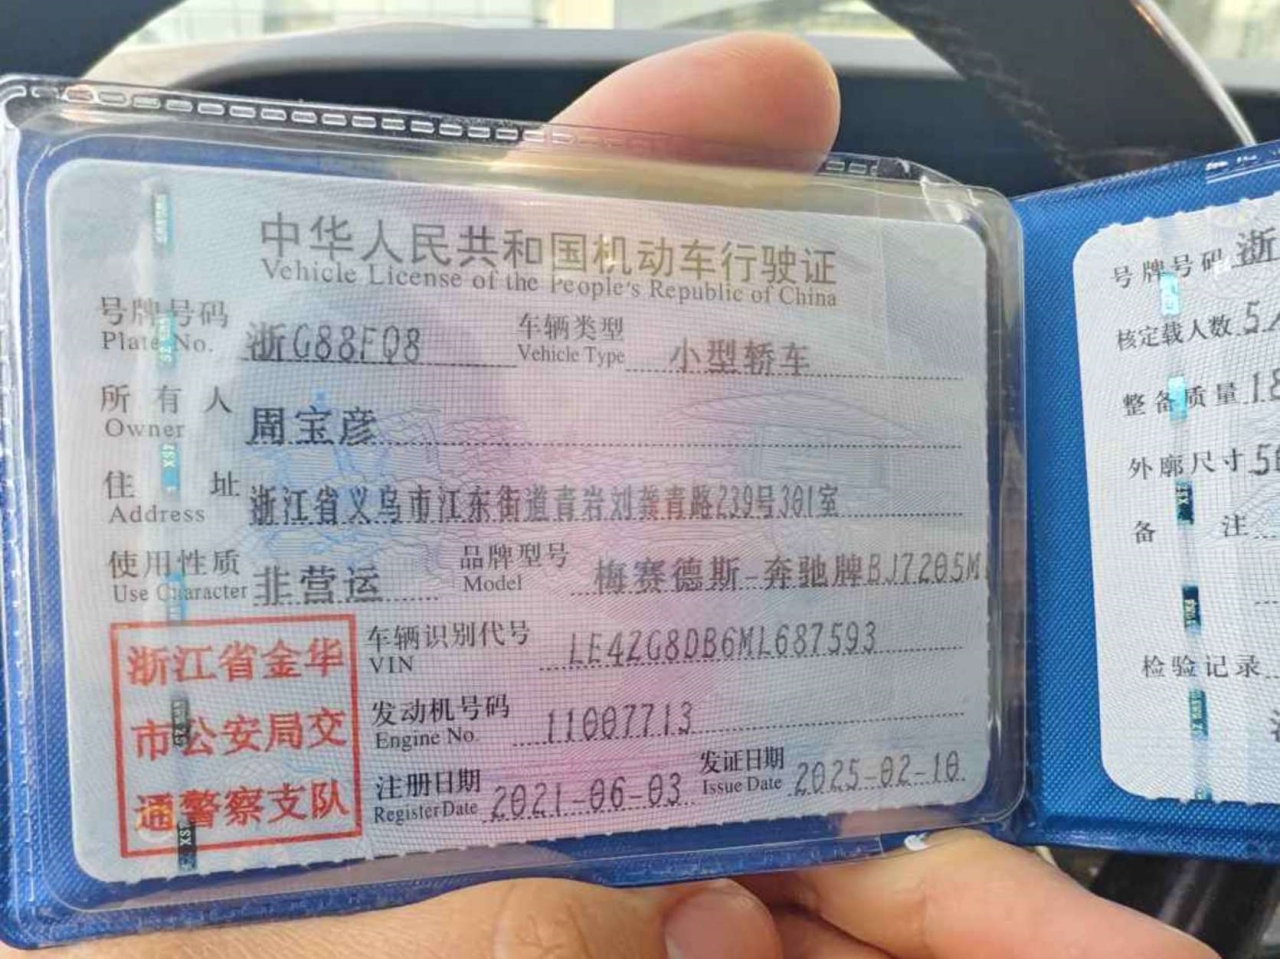 中华人民共和国机动车行驶证
Vehicle License of the People's Republic of China
号牌号码 浙G88FQ8 车辆类型 小型轿车
Plate No. Vehicle Type
所有人 周宝彦
Owner
住址 浙江省义乌市江东街道青岩刘龚青路239号301室
Address
使用性质 非营运 品牌型号 梅赛德斯-奔驰牌BJ7205M
Use Character Model
浙江省金华
市公安局交
通警察支队
车辆识别代号 LE4ZG8DB6ML687593
VIN
发动机号码 11007713
Engine No.
注册日期 2021-06-03 发证日期 2025-02-10
Register Date Issue Date
号牌号码 浙
核定载人数 5
整备质量 18
外廓尺寸 50
备注
检验记录